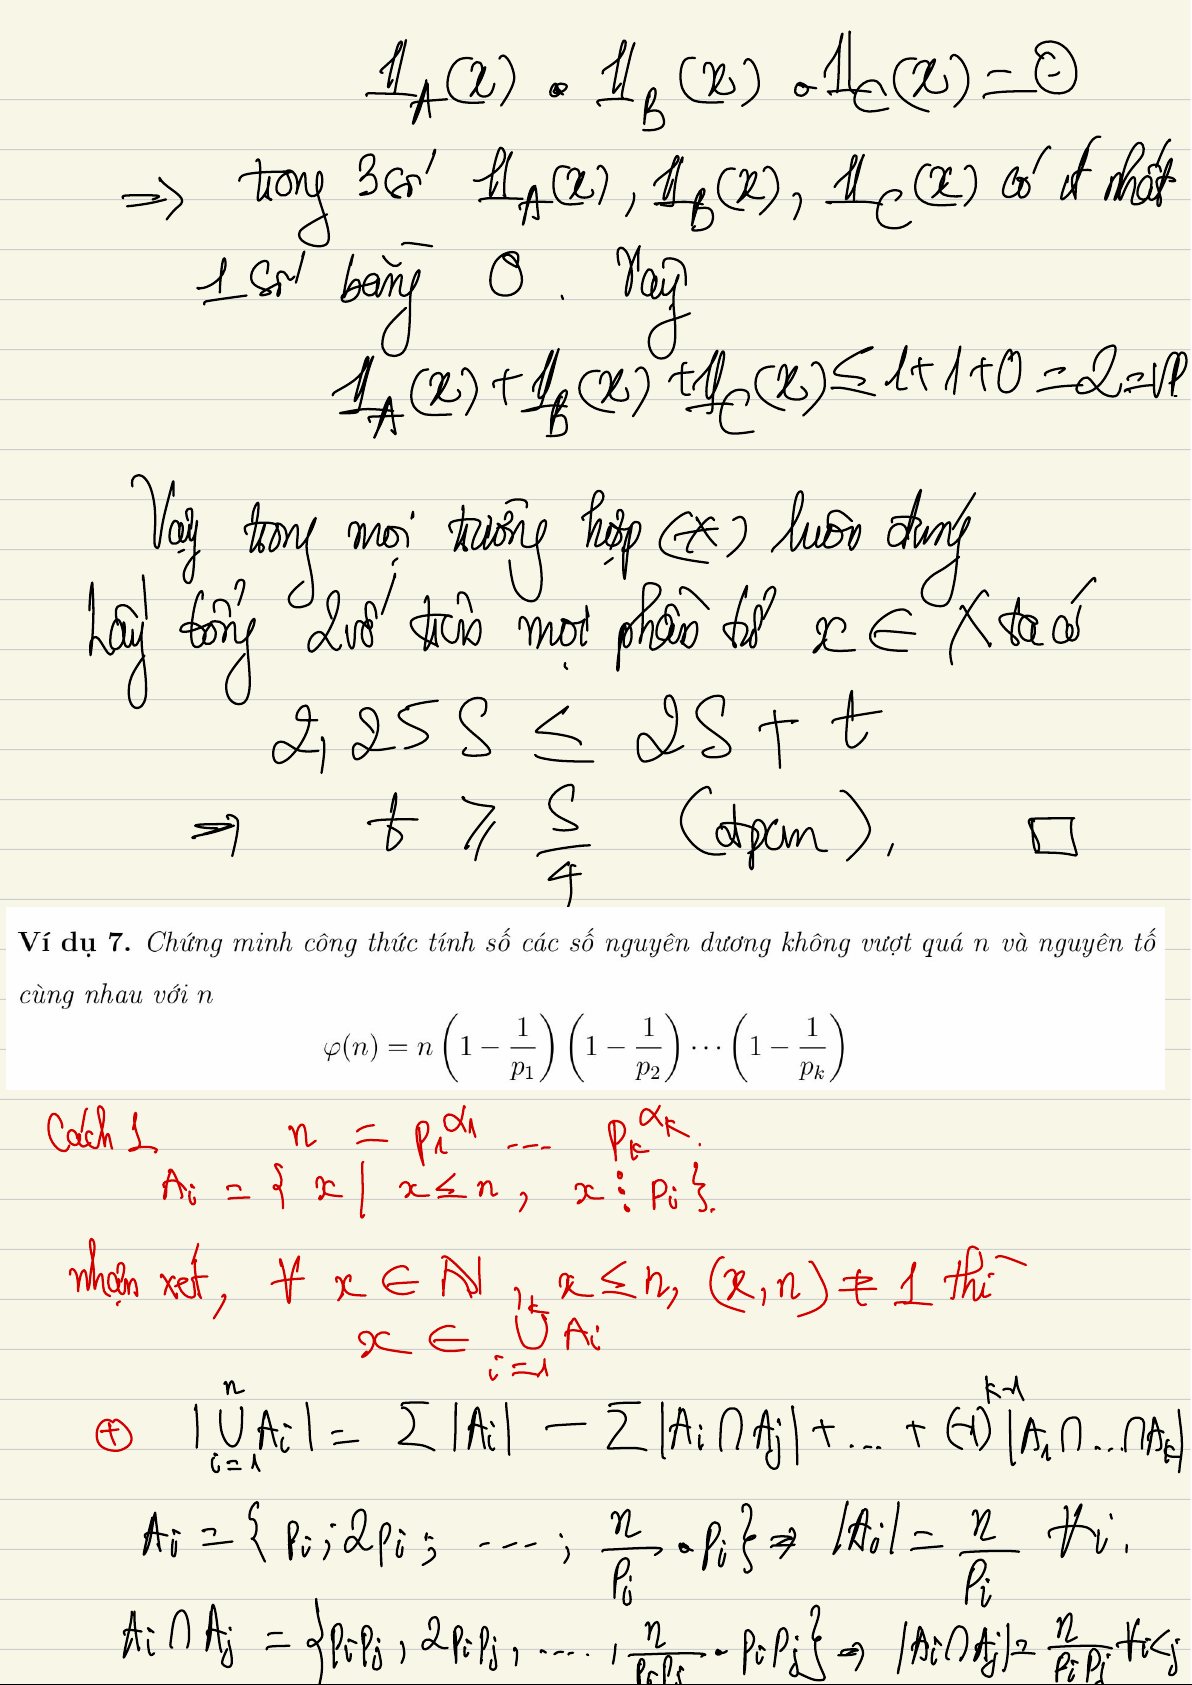 𝟙_A(x) . 𝟙_B(x) . 𝟙_C(x) = 0
⇒ trong 3 số 𝟙_A(x), 𝟙_B(x), 𝟙_C(x) có ít nhất
1 số bằng 0. Vậy
𝟙_A(x) + 𝟙_B(x) + 𝟙_C(x) ≤ 1+1+0 = 2 = VP
Vậy trong mọi trường hợp (*) luôn đúng
Lấy tổng 2 vế trên mọi phần tử x ∈ X ta có
2,25 S ≤ 2S + t
⇒ t ≥ S/4 (đpcm). □
Ví dụ 7. Chứng minh công thức tính số các số nguyên dương không vượt quá n và nguyên tố
cùng nhau với n
φ(n) = n (1 − 1/p₁) (1 − 1/p₂) ⋯ (1 − 1/pₖ)
Cách 1 n = p₁^α₁ ... pₖ^αₖ.
Aᵢ = { x | x ≤ n, x ⋮ pᵢ }.
nhận xét, ∀ x ∈ ℕ, x ≤ n, (x, n) ≠ 1 thì
x ∈ ⋃_{i=1}^{k} Aᵢ
⊕ |⋃_{i=1}^{n} Aᵢ| = Σ |Aᵢ| − Σ |Aᵢ ∩ Aⱼ| + ... + (-1)^{k-1} |A₁ ∩ ... ∩ Aₖ|
Aᵢ = { pᵢ; 2pᵢ; ....; n/pᵢ . pᵢ } ⇒ |Aᵢ| = n/pᵢ ∀i.
Aᵢ ∩ Aⱼ = { pᵢpⱼ, 2pᵢpⱼ, ...., n/(pᵢpⱼ) . pᵢpⱼ } ⇒ |Aᵢ ∩ Aⱼ| = n/(pᵢpⱼ) ∀i<j